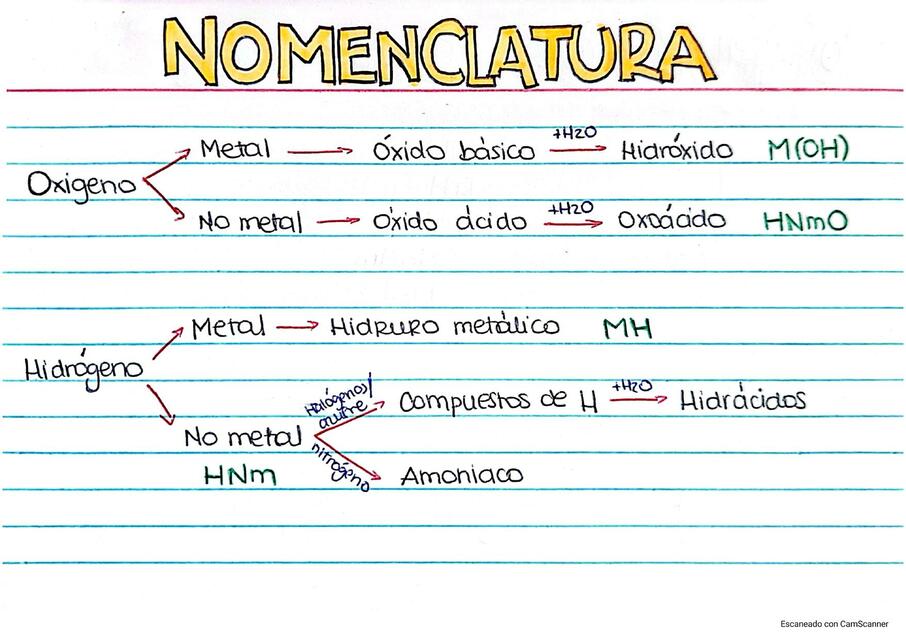 NOMENCLATURA
Oxigeno
Metal → Óxido básico +H2O → Hidróxido M(OH)
No metal → Óxido ácido +H2O → Oxoácido HNmO
Hidrógeno
Metal → Hidruro metálico MH
No metal
HNm
Halógenos/
azufre
Compuestos de H +H2O → Hidrácidos
nitrógeno
Amoniaco
Escaneado con CamScanner